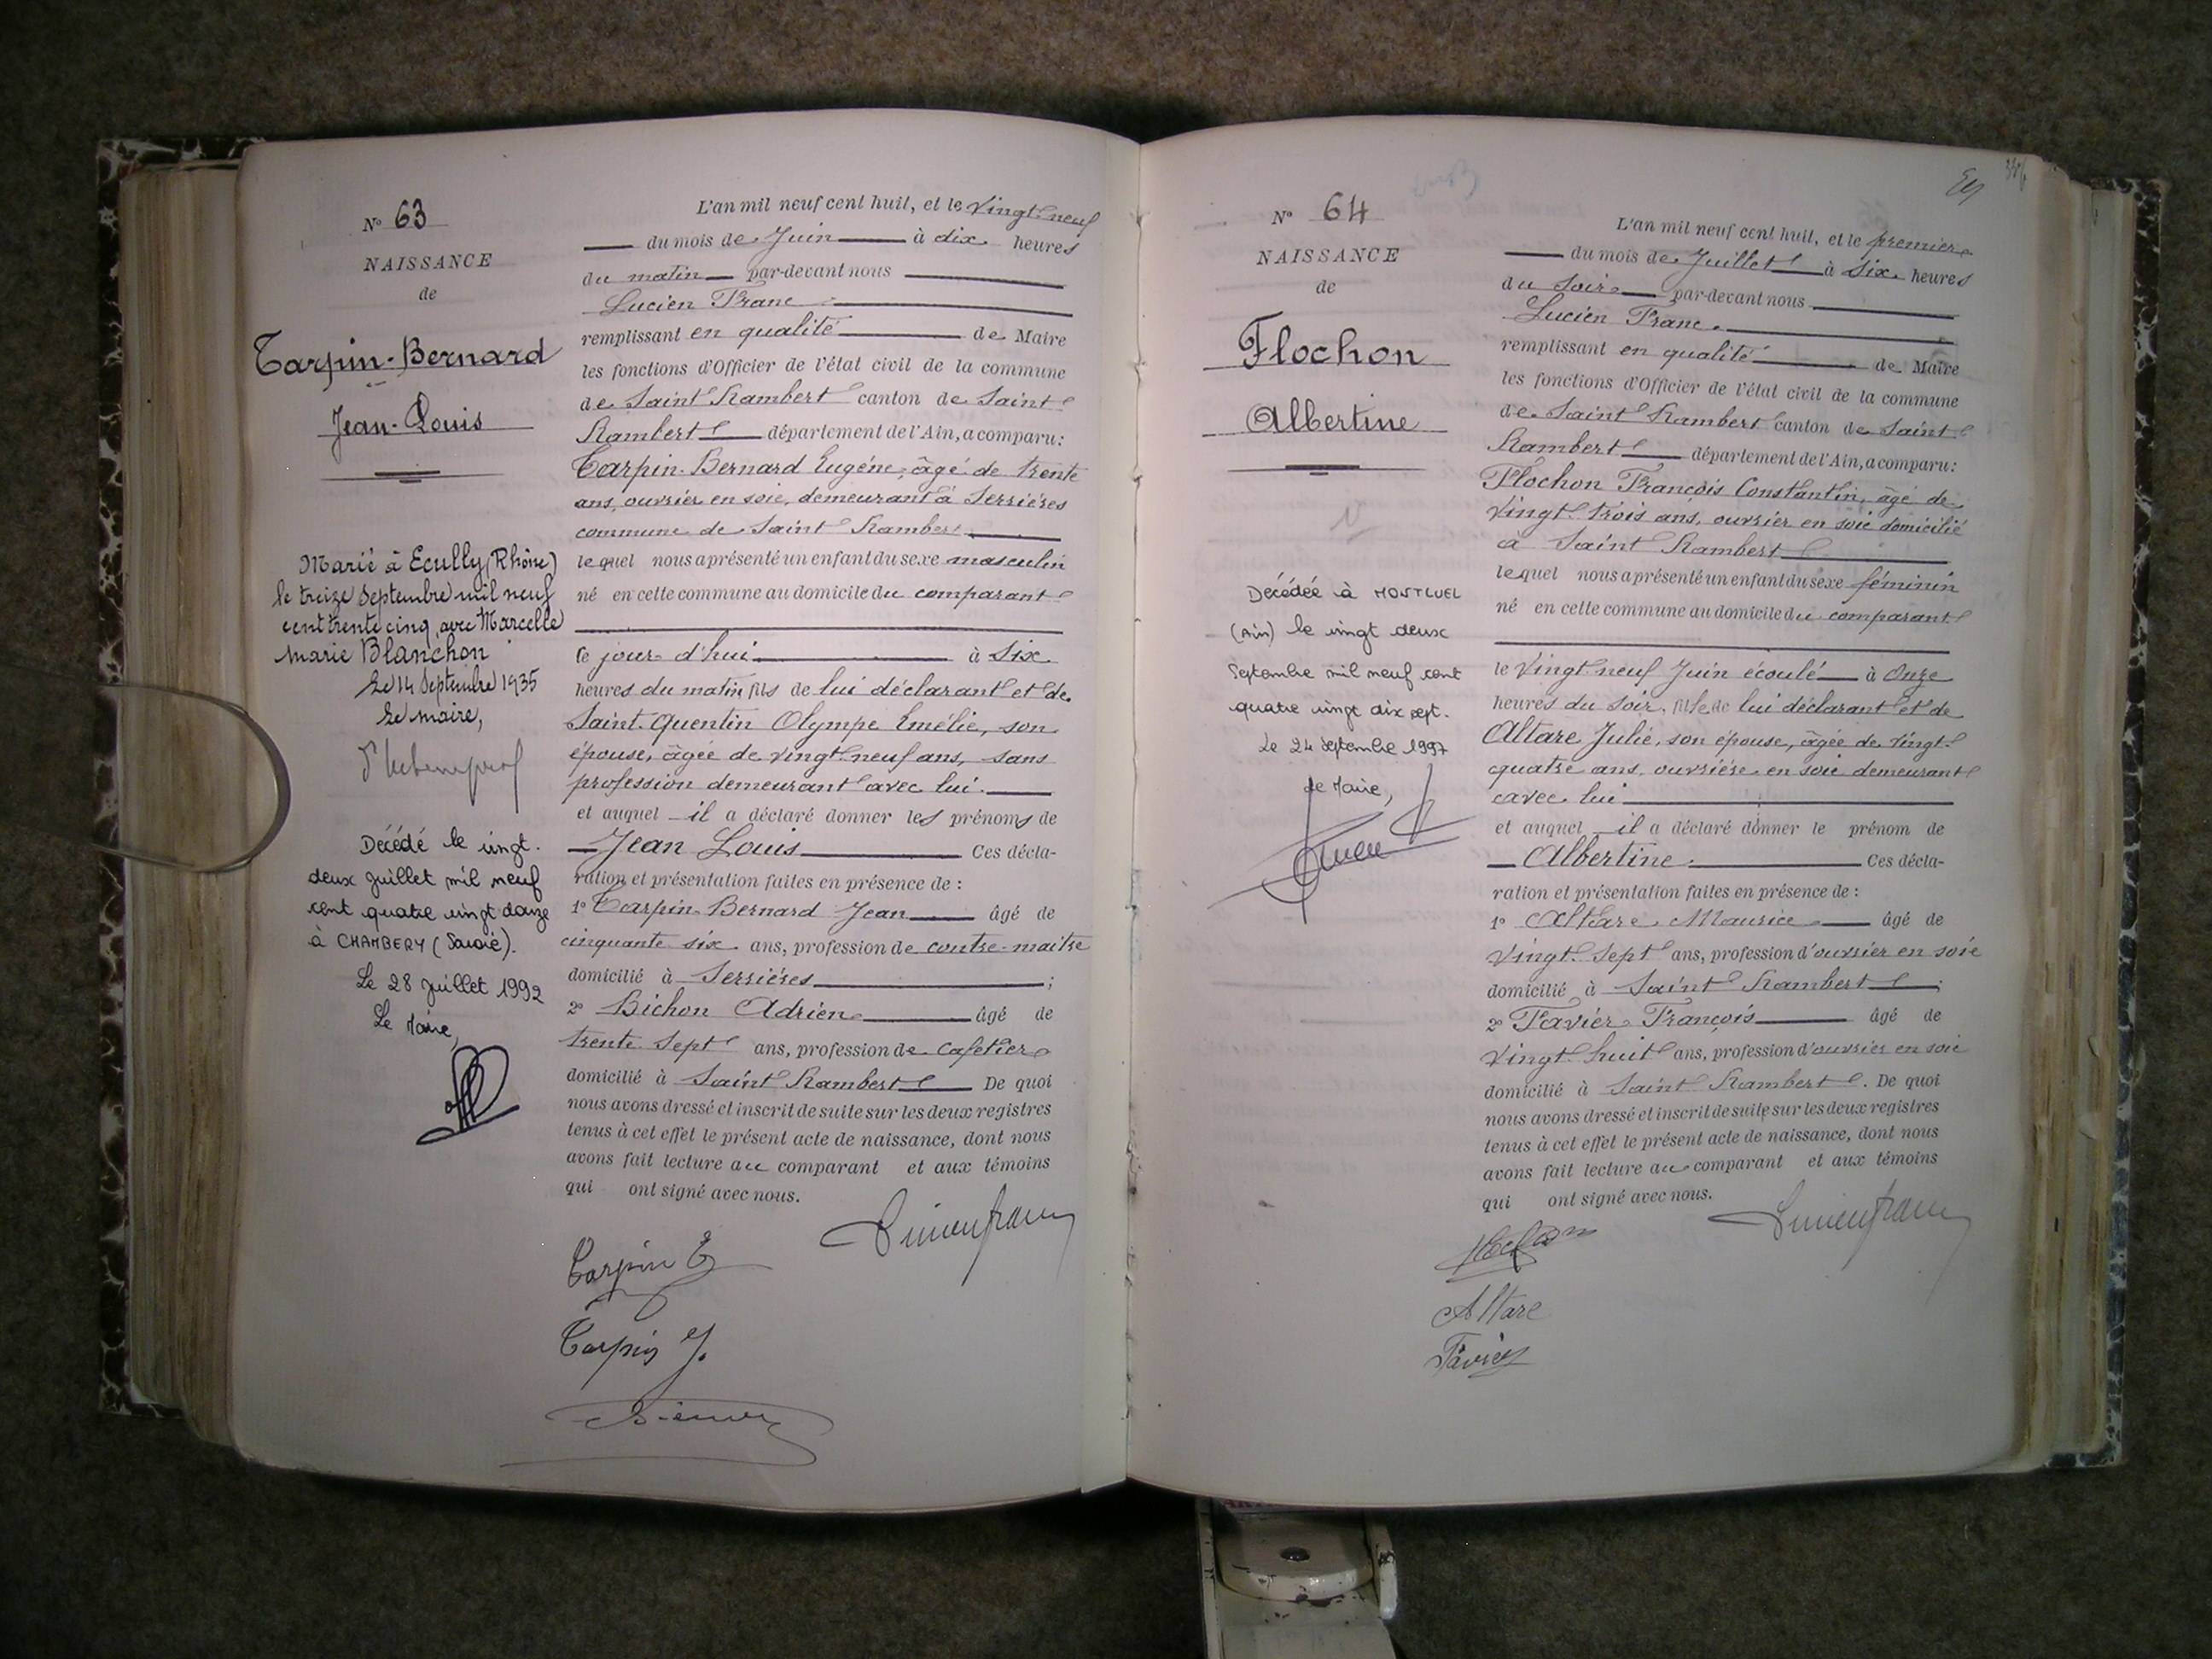 N° 63
NAISSANCE
de
Tarpin-Bernard
Jean-Louis
Marié à Ecully (Rhône)
le treize Septembre mil neuf
cent trente cinq, avec Marcelle
Marie Blanchon
Le 14 Septembre 1935
Le maire,
Décédé le vingt-
deux juillet mil neuf
cent quatre vingt douze
à CHAMBERY (Savoie).
Le 28 juillet 1992
Le Maire,
L'an mil neuf cent huit, et le Vingt-neuf
du mois de Juin à dix heures
du matin par-devant nous
Lucien Franc
remplissant en qualité de Maire
les fonctions d'Officier de l'état civil de la commune
de Saint Rambert canton de Saint
Rambert département de l'Ain, a comparu:
Tarpin-Bernard Eugéne, âgé de trente
ans, ouvrier en soie, demeurant à Serriéres
commune de Saint Rambert
lequel nous a présenté un enfant du sexe masculin
né en cette commune au domicile du comparant
ce jour d'hui à Six
heures du matin fils de lui déclarant et de
Saint-Quentin Olympe Emélie, son
épouse, âgée de vingt-neuf ans, sans
profession demeurant avec lui.
et auquel il a déclaré donner les prénoms de
Jean Louis Ces décla-
ration et présentation faites en présence de :
1° Tarpin-Bernard Jean âgé de
cinquante six ans, profession de contre-maitre
domicilié à Serriéres ;
2° Bichon Adrien âgé de
trente Sept ans, profession de cafetier
domicilié à Saint Rambert De quoi
nous avons dressé et inscrit de suite sur les deux registres
tenus à cet effet le présent acte de naissance, dont nous
avons fait lecture au comparant et aux témoins
qui ont signé avec nous.
Tarpin E
Lucien franc
Tarpin J.
N° 64
NAISSANCE
de
Flochon
Albertine
Décédée à MONTLUEL
(Ain) le vingt deux
Septembre mil neuf cent
quatre vingt dix sept.
Le 24 Septembre 1997
Le Maire,
L'an mil neuf cent huit, et le premier
du mois de Juillet à Six heures
du Soir par-devant nous
Lucien Franc.
remplissant en qualité de Maire
les fonctions d'Officier de l'état civil de la commune
de Saint Rambert canton de Saint
Rambert département de l'Ain, a comparu:
Flochon François Constantin, âgé de
Vingt-trois ans, ouvrier en soie domicilié
à Saint Rambert
lequel nous a présenté un enfant du sexe féminin
né en cette commune au domicile du comparant
le Vingt-neuf Juin écoulé à Onze
heures du Soir, fille de lui déclarant et de
Altare Julie, son épouse, âgée de Vingt-
quatre ans, ouvriére en soie demeurant
avec lui
et auquel il a déclaré donner le prénom de
Albertine. Ces décla-
ration et présentation faites en présence de :
1° Altare Maurice âgé de
Vingt-Sept ans, profession d'ouvrier en soie
domicilié à Saint Rambert ;
2° Favier François âgé de
Vingt-huit ans, profession d'ouvrier en soie
domicilié à Saint Rambert. De quoi
nous avons dressé et inscrit de suite sur les deux registres
tenus à cet effet le présent acte de naissance, dont nous
avons fait lecture au comparant et aux témoins
qui ont signé avec nous.
Lucien franc
Altare
Favier